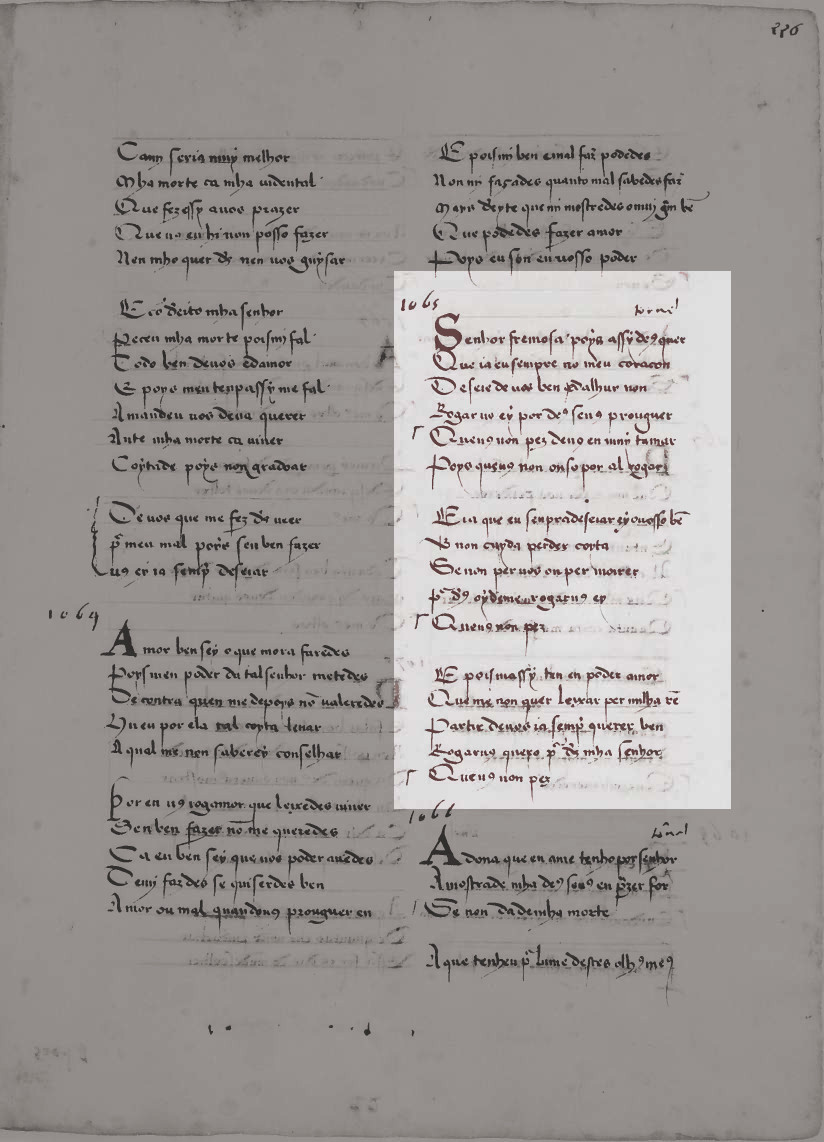 226
Camj seria muỹ melhor
Mha morte ca mha vidental
Que fez assy a uos prazer
Que uꝯ eu hi non posso fazer
Nen mho quer đs nen uos guysar
E cō deito mha senhor
Peceu mha morte poismi fal
Todo ben deuos edamor
E poys meu tenpassy me fal
Amandeu uos deua querer
Ante mha morte ca uiuer
Coytade poys non gradoar
De uos que me fez đs ueer
p̃ meu mal poys sen ben fazer
uꝯ ey ia semp̃ deseiar
1064
Amor ben sey o que mora faredes
Poys men poder da tal senhor metedes
De contra quen me depoys nō ualeredes
Hu eu por ela tal coyta leuar
A qual me non saberey conselhar
Por en uꝯ rogamor que leixedes uiuer
Sen ben fazer nō me queredes
Ca eu ben sey que uos poder auedes
Demj fazdes se quiserdes ben
Amor ou mal quandouꝯ prouguer en
E poismi ben e mal faz podedes
Non mi façades quanto mal sabedes faz
Mays deyte que mi mostredes o muj gm̃ bē
Que podedes fazer amor
Poys eu sōn en uosso poder
1065
tornel
Senhor fremosa poys assy deꝯ quer
Que ia eu sempre no meu coraçon
Deseie de uos ben e dalhur non
Rogar uo ey por deꝯ se uꝯ prouguer
Que uꝯ non pez deuo en muy tamar
Poys que uꝯ non ouso por al rogar
E ia que eu senpra deseiar ey o uosso bē
E non cuyda perder coyta
Se non per uos ou per morrer
p̃ đs oydeme e rogaruꝯ ey
Que uꝯ non pez
E poismassy ten en poder amor
Que me non quer leixar per nulha rē
Partir de uos ia semp̃ querer ben
Rogaruꝯ quero p̃ đs mha senhor
Que uꝯ non pez
1066
tornel
A dona que eu ame tenho por senhor
Amostrade mha deꝯ se uꝯ en p̃zer for
Se non dademha morte
A que tenheu p̃ lume destes olhꝯ meꝯ